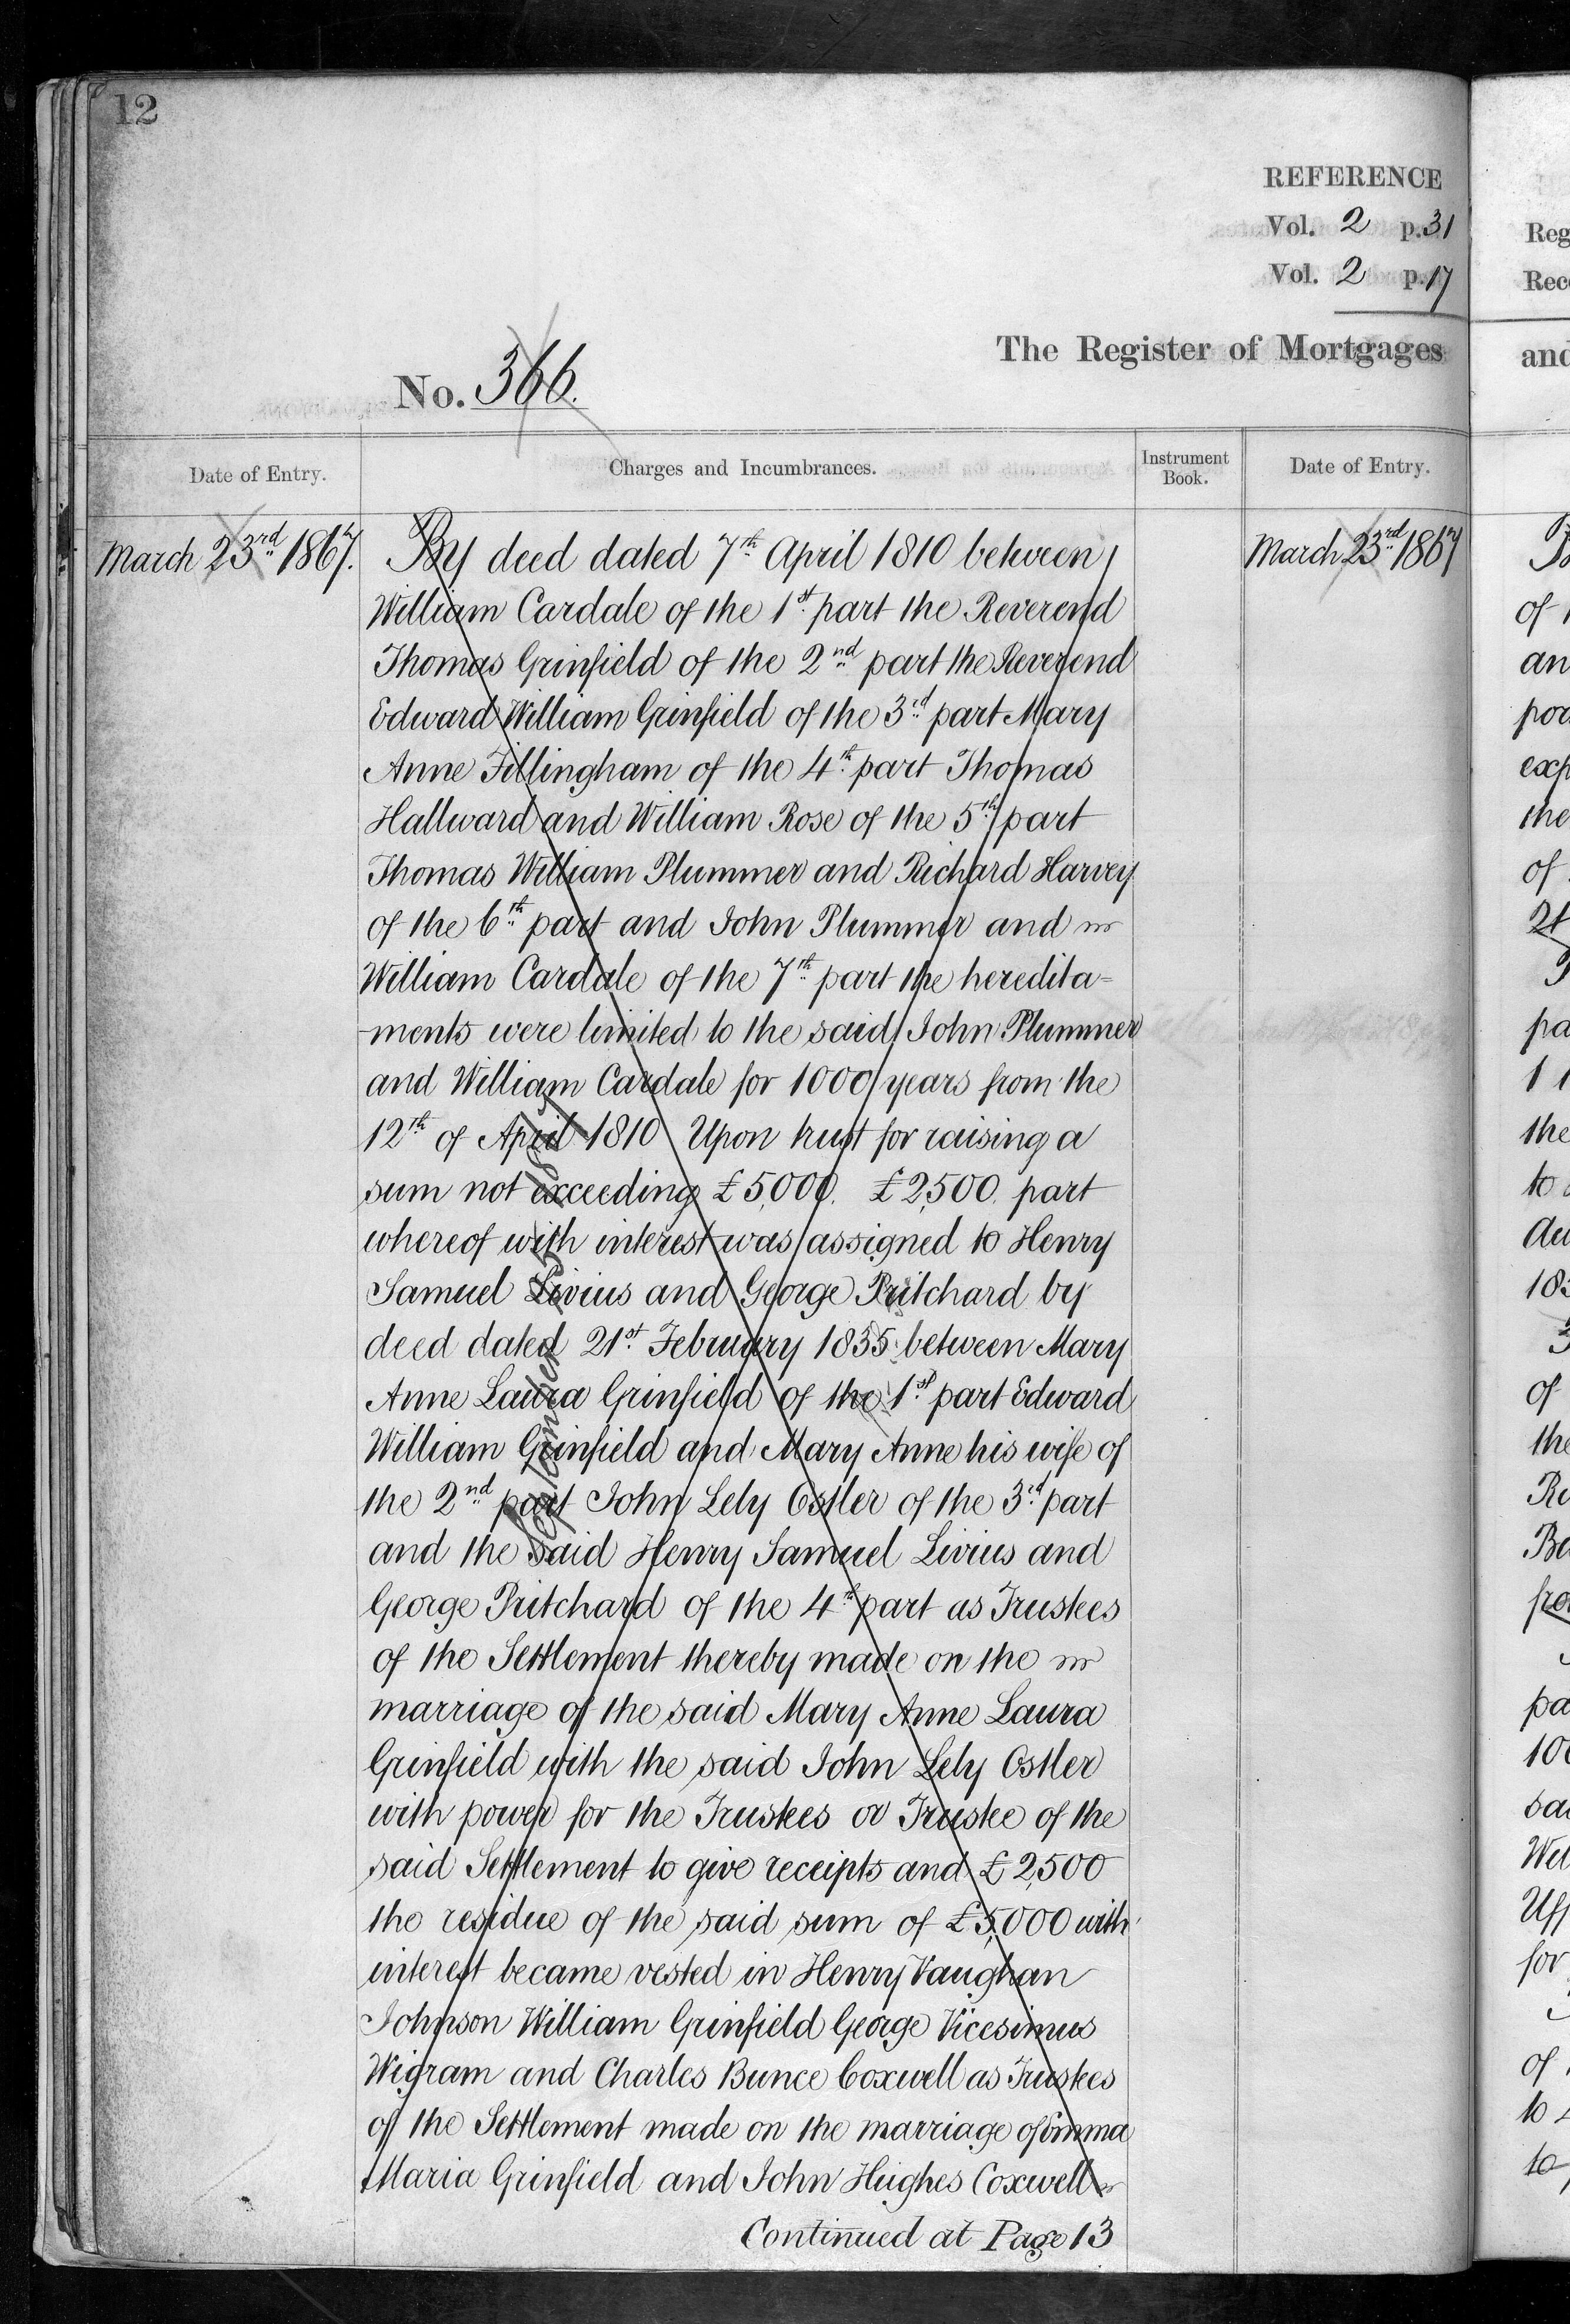 12
REFERENCE
Vol. 2 p. 31
Vol. 2 p. 17
The Register of Mortgages
No. 366.
Date of Entry.
Charges and Incumbrances.
Instrument Book.
Date of Entry.
March 23rd 1867.
March 23rd 1867
By deed dated 7th April 1810 between
William Cardale of the 1st part the Reverend
Thomas Grinfield of the 2nd part the Reverend
Edward William Grinfield of the 3rd part Mary
Anne Fillingham of the 4th part Thomas
Hallward and William Rose of the 5th part
Thomas William Plummer and Richard Harvey
of the 6th part and John Plummer and
William Cardale of the 7th part the heredita=
-ments were limited to the said John Plummer
and William Cardale for 1000 years from the
12th of April 1810 Upon trust for raising a
sum not exceeding £5,000. £2,500 part
whereof with interest was assigned to Henry
Samuel Livius and George Pritchard by
deed dated 21st February 1835 between Mary
Anne Laura Grinfield of the 1st part Edward
William Grinfield and Mary Anne his wife of
the 2nd part John Lely Ostler of the 3rd part
and the said Henry Samuel Livius and
George Pritchard of the 4th part as Trustees
of the Settlement thereby made on the
marriage of the said Mary Anne Laura
Grinfield with the said John Lely Ostler
with power for the Trustees or Trustee of the
said Settlement to give receipts and £2,500
the residue of the said sum of £5,000 with
interest became vested in Henry Vaughan
Johnson William Grinfield George Vicesimus
Wigram and Charles Bunce Coxwell as Trustees
of the Settlement made on the marriage of Emma
Maria Grinfield and John Hughes Coxwell
Continued at Page 13
September
Reg
Rec
and
of
an
por
exp
the
of
21
pa
1
the
to
du
183
of
the
Re
Be
fro
pa
100
sai
Wil
Uff
for
of
to
to